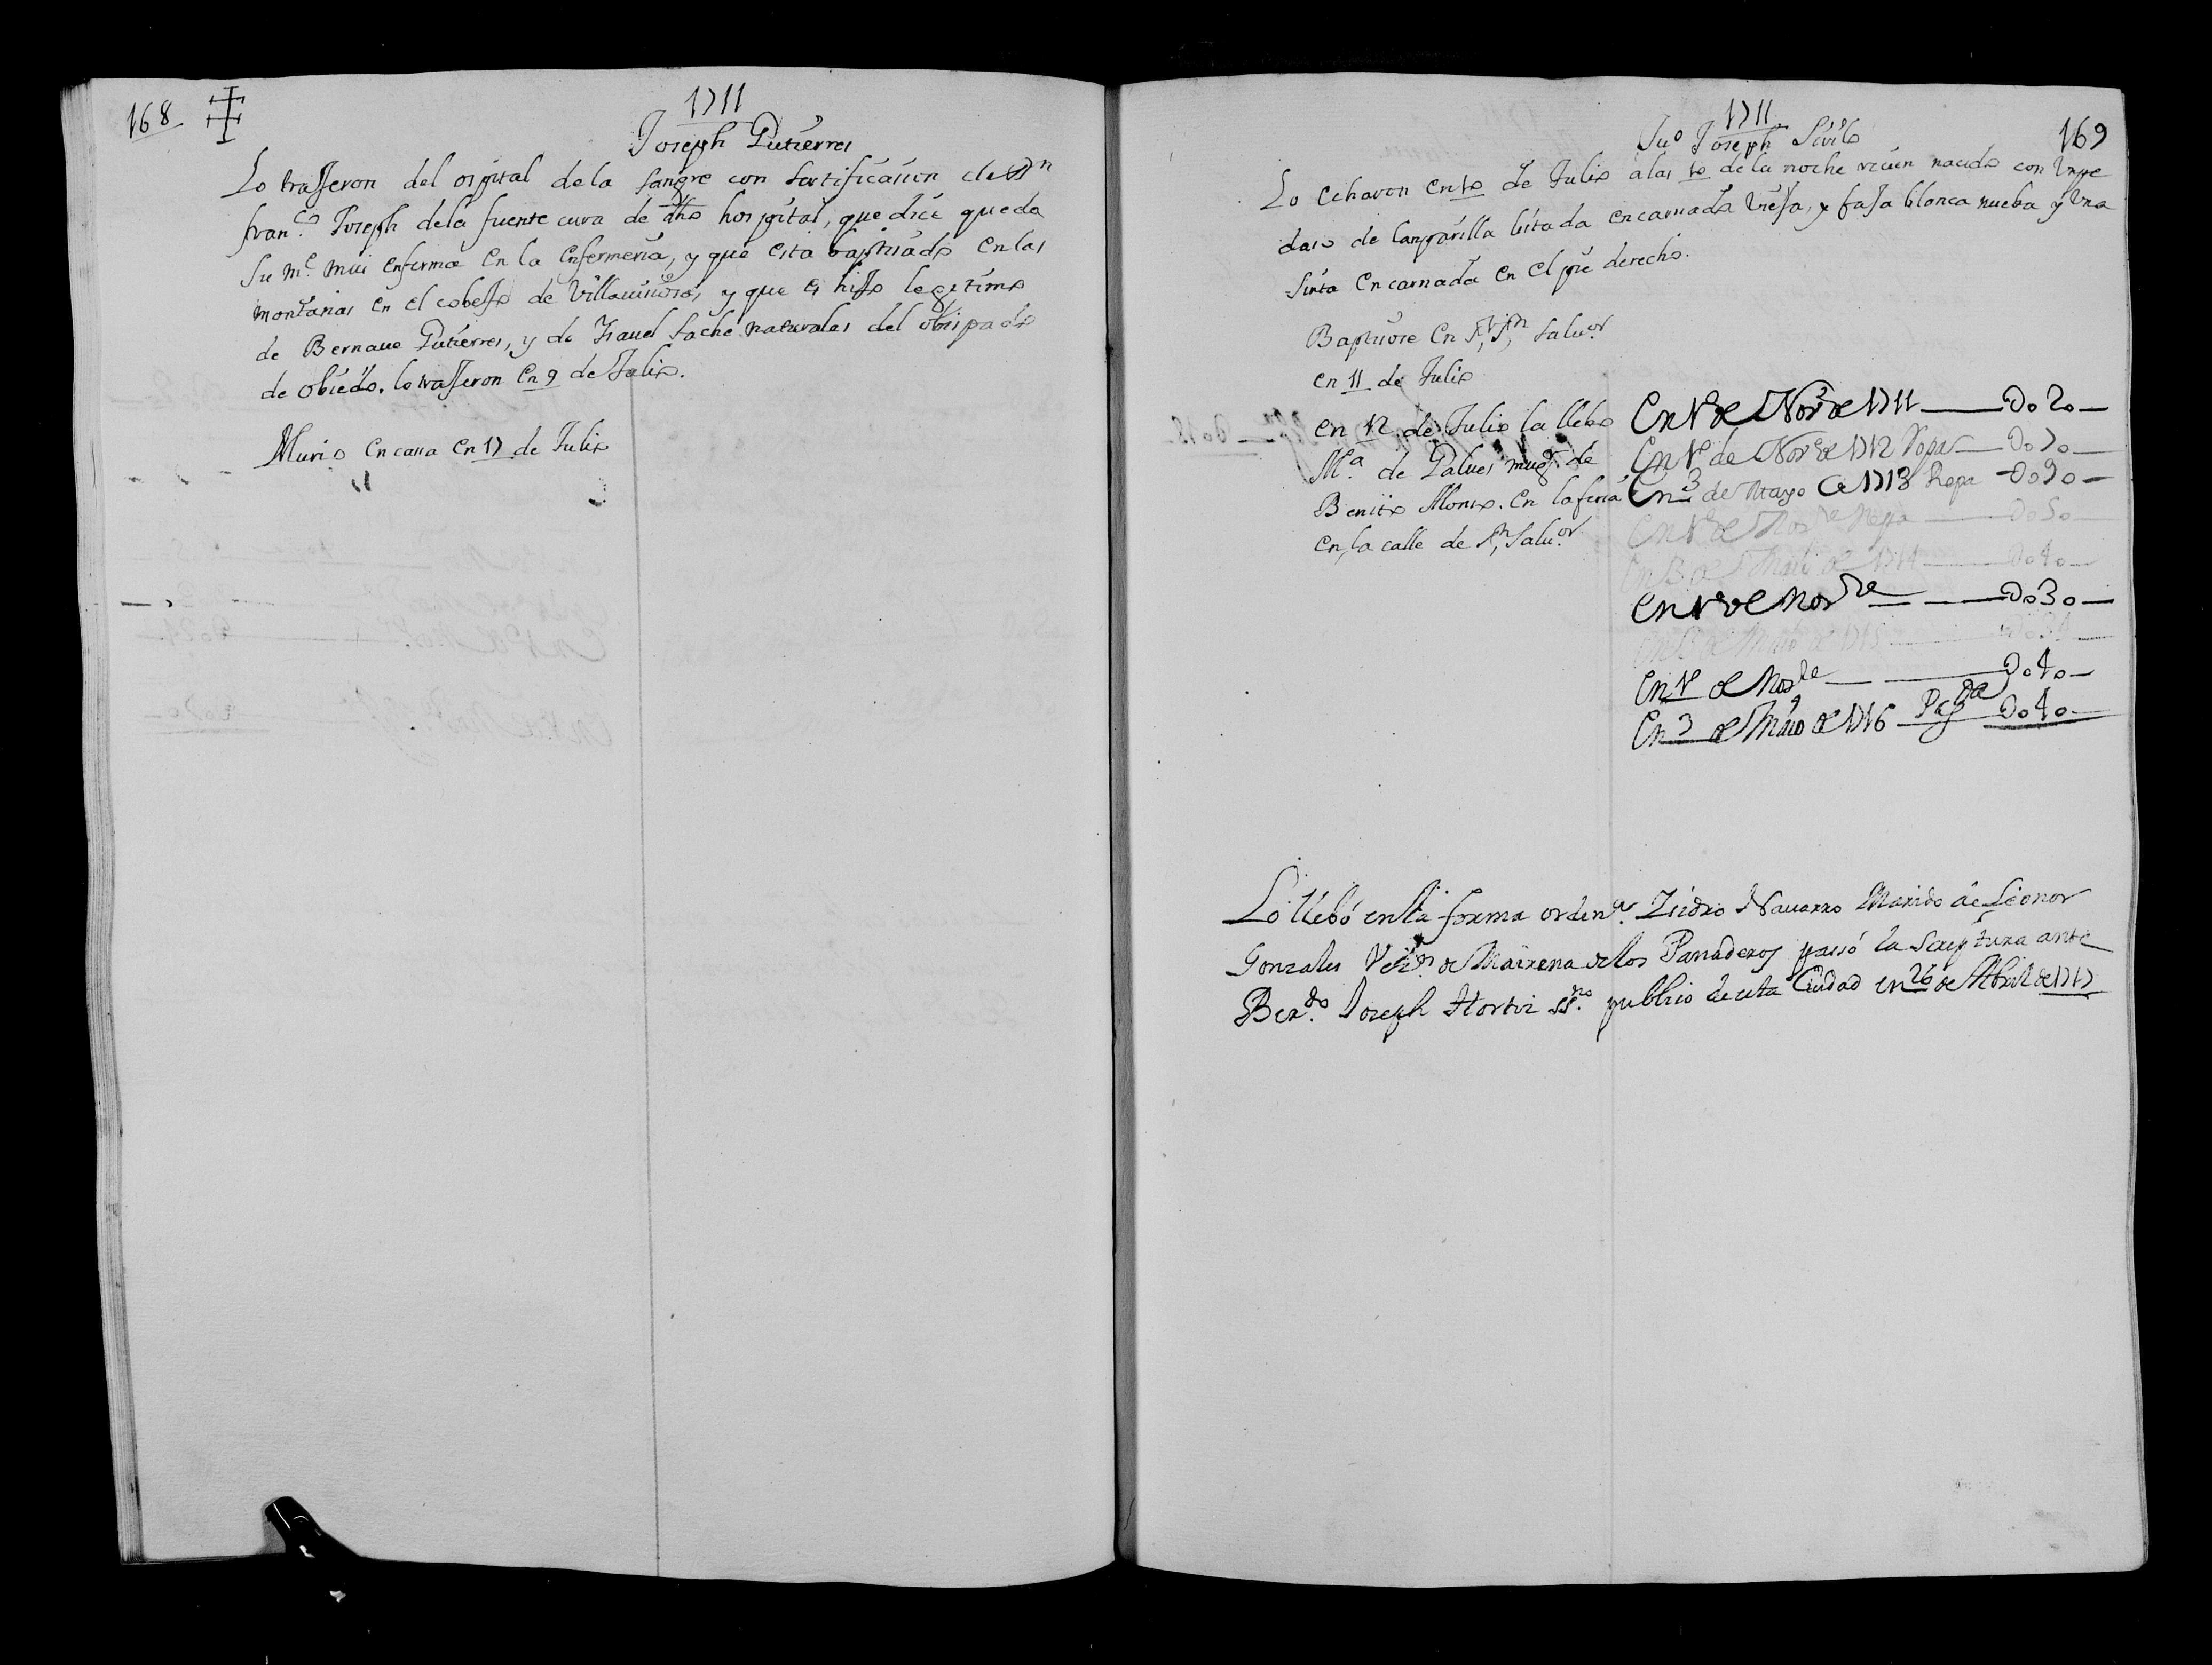 168
1711
Joseph Gutierres
Lo trasseron del ospital de la sangre con sertificasion de Dn
franco Joseph de la fuente cura de dho hospital, que dice queda
su me mui enferma en la enfermeria, y que esta baptisado en las
montañas en el cobesso de Villauisiosa, y que es hisso legitimo
de Bernaue Gutierres, y de Isauel Sache naturales del obispado
de obiedo. lo trasseron en 9 de Julio.
Murio en casa en 17 de Julio
1711
169
Juo Joseph Sirilo
Lo echaron en 10 de Julio a las 10 de la noche resien nasido con un pe
daso de lanparilla listada encarnada viesa, y fasa blanca nueba y una
sinta encarnada en el pie derecho.
Baptisose en Sr Sn Saluor
en 11 de Julio
en 12 de Julio la llebo
Ma de Galues muger de
Benito Alonso. en la feria
en la calle de Sn Saluor
En 1º de Nore de 1711 — Do 20 —
En 1º de Nore de 1712 Ropa — Do 70 —
En 3 de Mayo de 1713 Ropa — Do 90 —
En 1º de Nore Ropa — Do 50 —
En 3 de Maio de 1714 — Do 40 —
En 1º de Nore — Do 30 —
En 3 de Maio de 1715 —
En 1º de Nore — Do 40 —
En 3 de Maio de 1716 — Pagda Do 40 —
Lo llebó en la forma ordena Isidro Nauarro Marido de Leonor
Gonzales Vezn de Mairena de los Panaderos passó la Scriptura ante
Berdo Joseph Hortiz ssno publico de esta Ciudad en 26 de Abril de 1717